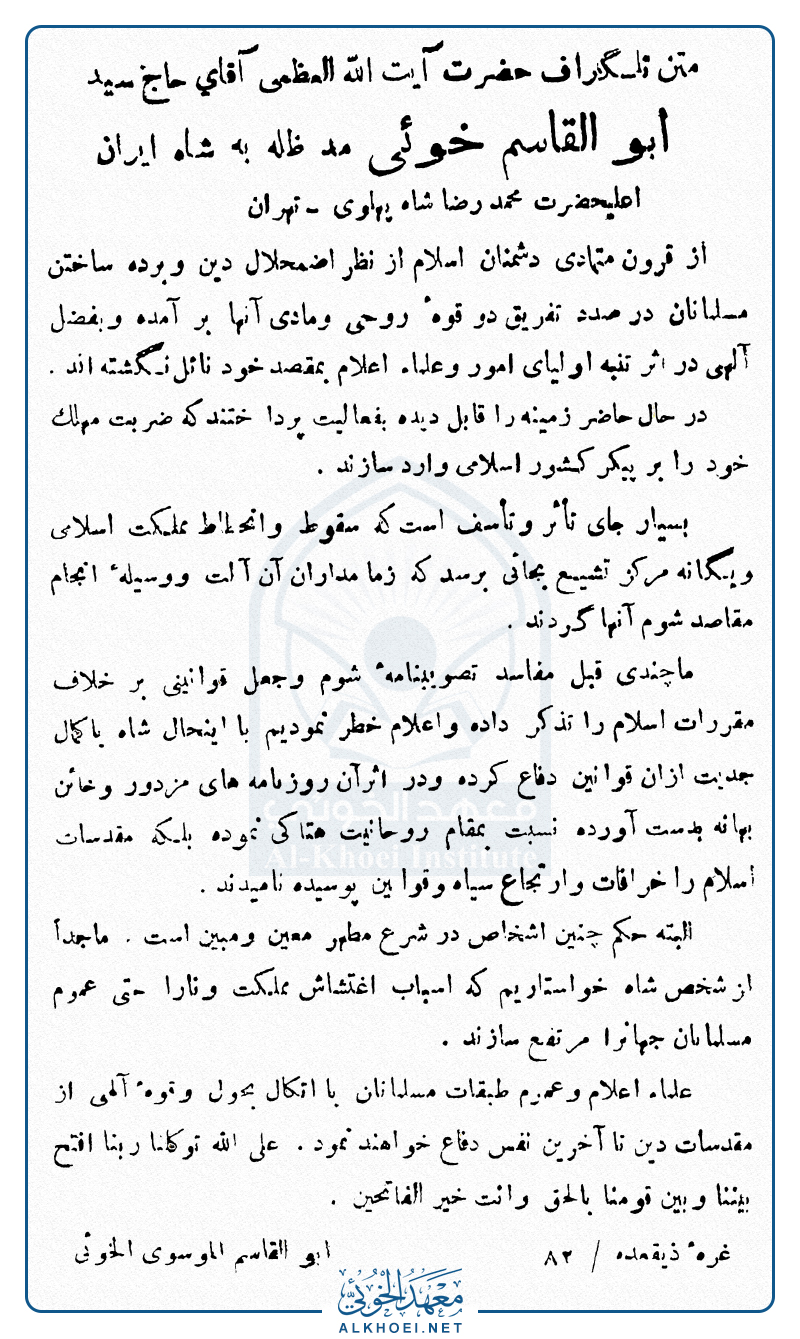 متن تلـگراف حضرت آيت الله العظمى آقاي حاج سيد
أبو القاسم خوئى مد ظاله به شاه ايران
اعليحضرت محمد رضا شاه پهاوى ـ تهران
از قرون متمادى دشمنان اسلام از نظر اضمحلال دين وبرده ساختن
مسلمانان درصدد تفريق دو قوهٔ روحى ومادى آنها بر آمده وبفضل
آلهى در اثر تنبه اولياى امور وعلماء اعلام بمقصد خود نائل نـگشته اند .
در حال حاضر زمينه را قابل ديده بفعاليت پردا ختند كه ضربت مهلك
خود را بر پيكر كشور اسلامى وارد سازند .
بسيار جاى تأثر وتأسف است كه سقوط وانحطاط مملـكت اسلامى
ويـگانه مركز تشيـع بجائى برسد كه زمامداران آن آلت ووسيلهٔ انجام
مقاصد شوم آنها گردند .
ماچندى قبل مفاسد تصويبنامهٔ شوم وجعل قوانينى بر خلاف
مقررات اسلام را تذكر داده واعلام خطر نموديم با اينحال شاه باكمال
جديت ازان قوانين دفاع كرده ودر اثرآن روزنامه هاى مزدور وخائن
بهانه بدست آورده نسبت بمقام روحانيت هتاكى نموده بلـكه مقدسات
اسلام را خرافات وارتجاع سياه وقوانين پوسيده ناميدند .
البته حكم چنين اشخاص در شرع مطهر معين ومبين است . ماجداً
از شخص شاه خواستاريم كه اسباب اغتشاش مملـكت ونارا حتى عموم
مسلمانان جهانرا مرتفع سازند .
علماء اعلام وعموم طبقات مسلمانان با اتكال بحول وقوهٔ آلهى از
مقدسات دين تا آخرين نفس دفاع خواهند نمود . على الله توكلنا ربنا افتح
بيننا وبين قومنا بالحق وانت خير الفاتحين .
غرهٔ ذيقعده / ٨٢
ابو القاسم الموسوى الخوئى
معهد الخوئي
Al-Khoei Institute
معهد الخوئي
ALKHOEI.NET